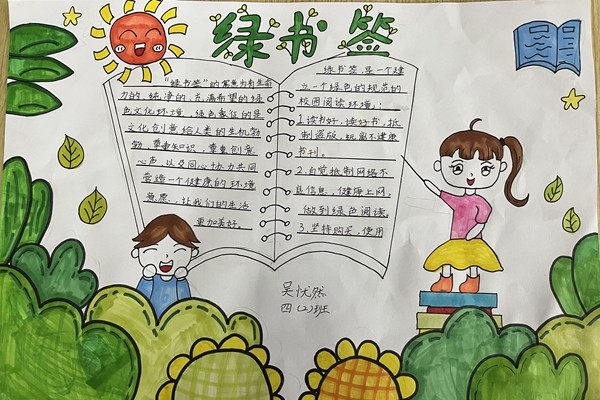 绿书签
"绿书签"的寓意为有生命
力的、纯净的、充满希望的绿
色文化环境，绿色象征的是
文化创意给人类的生机勃
勃，尊重知识、尊重创意
心声，以及同心协力共同
营造一个健康的环境
意愿，让我们的生活
更加美好。
绿书签，是一个建
立一个绿色的规范的
校园阅读环境：
1.读书好，读好书，抵
制盗版，玩恶不健康
书刊。
2.自觉抵制网络不
良信息，健康上网，
做到绿色阅读。
3.坚持购买、使用
吴忧然
四(2)班